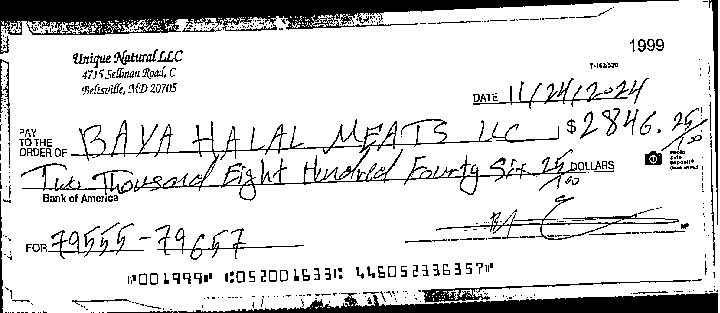 Unique Natural LLC
1999
4715 Sellman Road, C
7-163/520
Beltsville, MD 20705
DATE 11/24/2024
PAY TO THE ORDER OF BAYA HALAL MEATS LLC $2846. 25/100
Two Thousand Eight Hundred Fourty Six 25/100 DOLLARS
Bank of America
FOR 79555-79657
⑈001999⑈ ⑆052001633⑆ 446052336357⑈